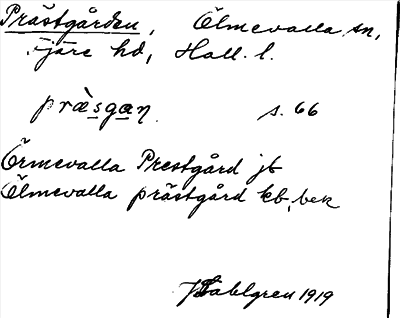 Prästgården, Ölmevalla sn,
Fjäre hd, Hall. l.
præ̀sgan. s. 66
Örmevalla Prestgård jb
Ölmevalla prästgård kb, bek
Sahlgren 1919